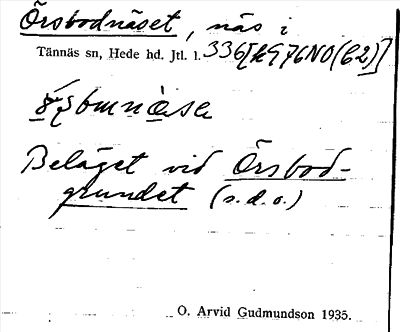 Örsbodnäset, näs i
Tännäs sn, Hede hd. Jtl. l. 336[kG76NO(C2)]
Beläget vid Örsbod-
grundet (s.d.o.)
O. Arvid Gudmundson 1935.